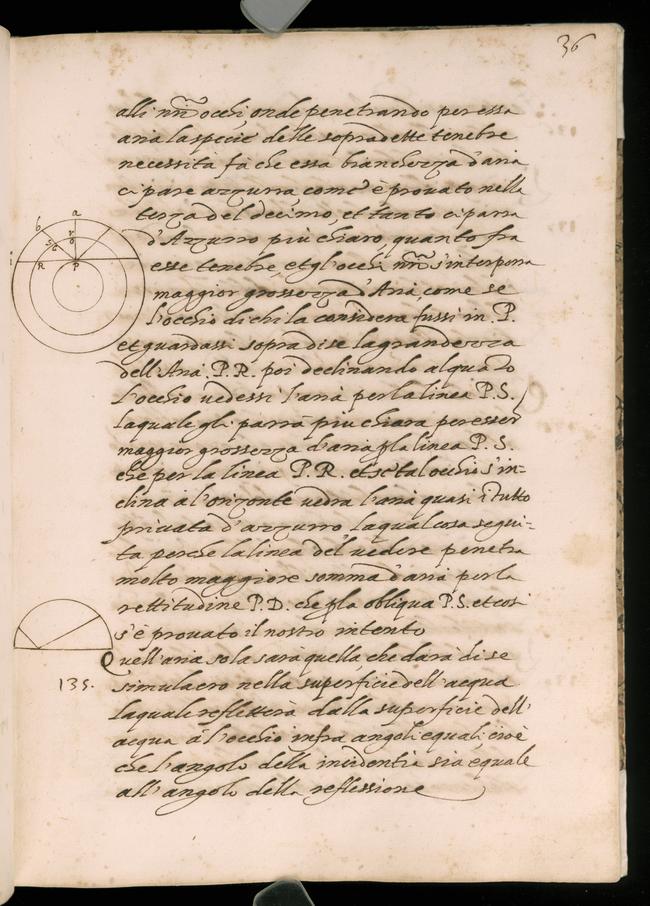 36
alli nri occhi onde penetrando per essa
aria la specie delle sopradette tenebre
necessità fà che essa bianchezza d'aria
ci pare azzurra come è provato nella
terza del decimo, et tanto ci parra
d'Azzurro più chiaro, quanto fra
esse tenebre, et gl'occhi nri s'interponra
maggior grossezza d'Aria, come se
l'occhio di chi la considera fussi in P.
et guardassi sopra di se la grandezza
dell'Aria P.R. poi declinando alquãto
l'occhio vedessi l'aria per la linea P.S.
laquale gli parrà piu chiara per esser
maggior grossezza d'aria ꝑ la linea P.S.
che per la linea P.R. et se tal occhio s'in-
clina à l'orizonte vedra l'aria quasi ĩ tutto
privata d'azzurro, laqual cosa segui-
ta perche la linea del vedere penetra
molto maggiore somma d'aria per la
rettitudine P.D. che ꝑ la obliqua P.S. et cosi
s'è provato il nostro intento
Quell'aria sola sarà quella che darà di se
135.
simulacro nella superficie dell'acqua
laquale refletterà dalla superficie dell'
acqua à l'occhio infra angoli equali cioè
che l'angolo della incidentia sia equale
all'angolo della reflessione
a
b
r
o
S
c
i
R
P